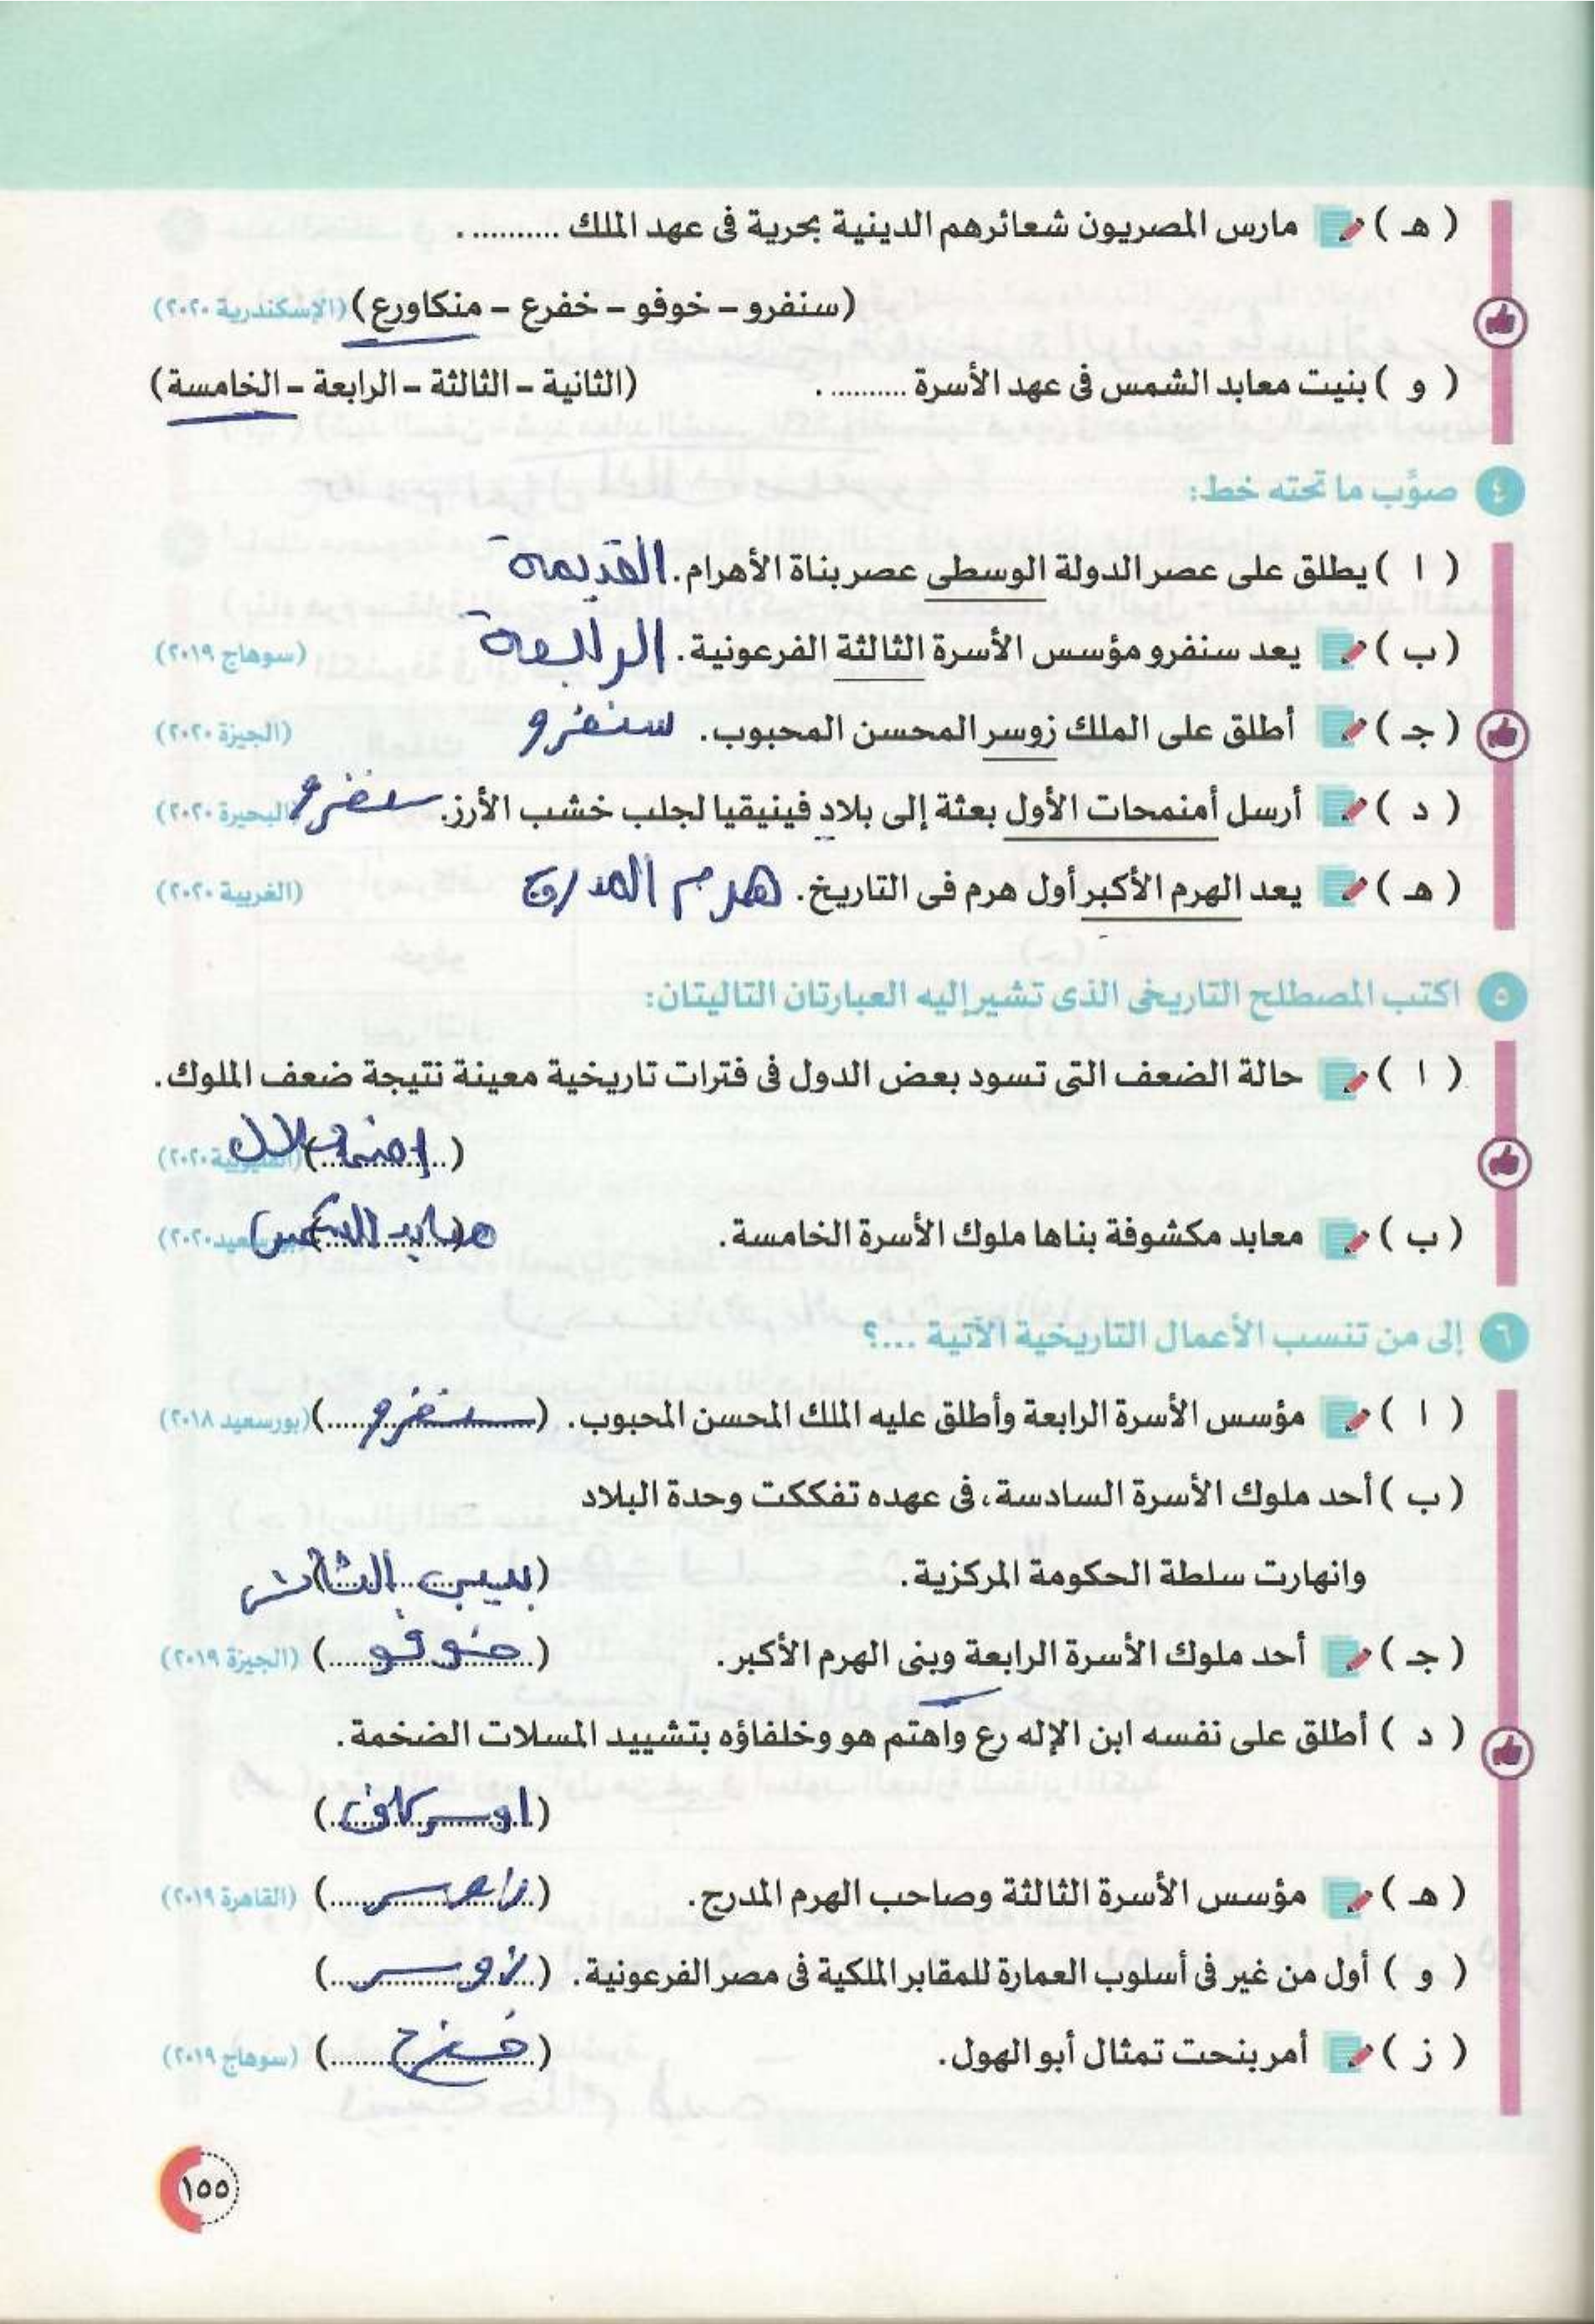 ( هـ ) مارس المصريون شعائرهم الدينية بحرية فى عهد الملك ........... .
(سنفرو – خوفو – خفرع – منكاورع) (الإسكندرية ٢٠٢٠)
( و ) بنيت معابد الشمس فى عهد الأسرة .......... . (الثانية – الثالثة – الرابعة – الخامسة)
٤ صوِّب ما تحته خط:
( ا ) يطلق على عصر الدولة الوسطى عصر بناة الأهرام. القديمة
( ب ) يعد سنفرو مؤسس الأسرة الثالثة الفرعونية. الرابعة (سوهاج ٢٠١٩)
( جـ ) أطلق على الملك زوسر المحسن المحبوب. سنفرو (الجيزة ٢٠٢٠)
( د ) أرسل أمنمحات الأول بعثة إلى بلاد فينيقيا لجلب خشب الأرز. سنفرو (البحيرة ٢٠٢٠)
( هـ ) يعد الهرم الأكبر أول هرم فى التاريخ. هرم المدرج (الغربية ٢٠٢٠)
٥ اكتب المصطلح التاريخى الذى تشير إليه العبارتان التاليتان:
( ا ) حالة الضعف التى تسود بعض الدول فى فترات تاريخية معينة نتيجة ضعف الملوك.
(..............) (القليوبية ٢٠٢٠)
( ب ) معابد مكشوفة بناها ملوك الأسرة الخامسة. معابد الشمس (بورسعيد ٢٠٢٠)
٦ إلى من تنسب الأعمال التاريخية الآتية ...؟
( ا ) مؤسس الأسرة الرابعة وأطلق عليه الملك المحسن المحبوب. (سنفرو) (بورسعيد ٢٠١٨)
( ب ) أحد ملوك الأسرة السادسة، فى عهده تفككت وحدة البلاد
وانهارت سلطة الحكومة المركزية. (بيبى الثانى)
( جـ ) أحد ملوك الأسرة الرابعة وبنى الهرم الأكبر. (خوفو) (الجيزة ٢٠١٩)
( د ) أطلق على نفسه ابن الإله رع واهتم هو وخلفاؤه بتشييد المسلات الضخمة.
(اوسركاف)
( هـ ) مؤسس الأسرة الثالثة وصاحب الهرم المدرج. (..............) (القاهرة ٢٠١٩)
( و ) أول من غير فى أسلوب العمارة للمقابر الملكية فى مصر الفرعونية. (زوسر)
( ز ) أمر بنحت تمثال أبو الهول. (خفرع) (سوهاج ٢٠١٩)
١٥٥